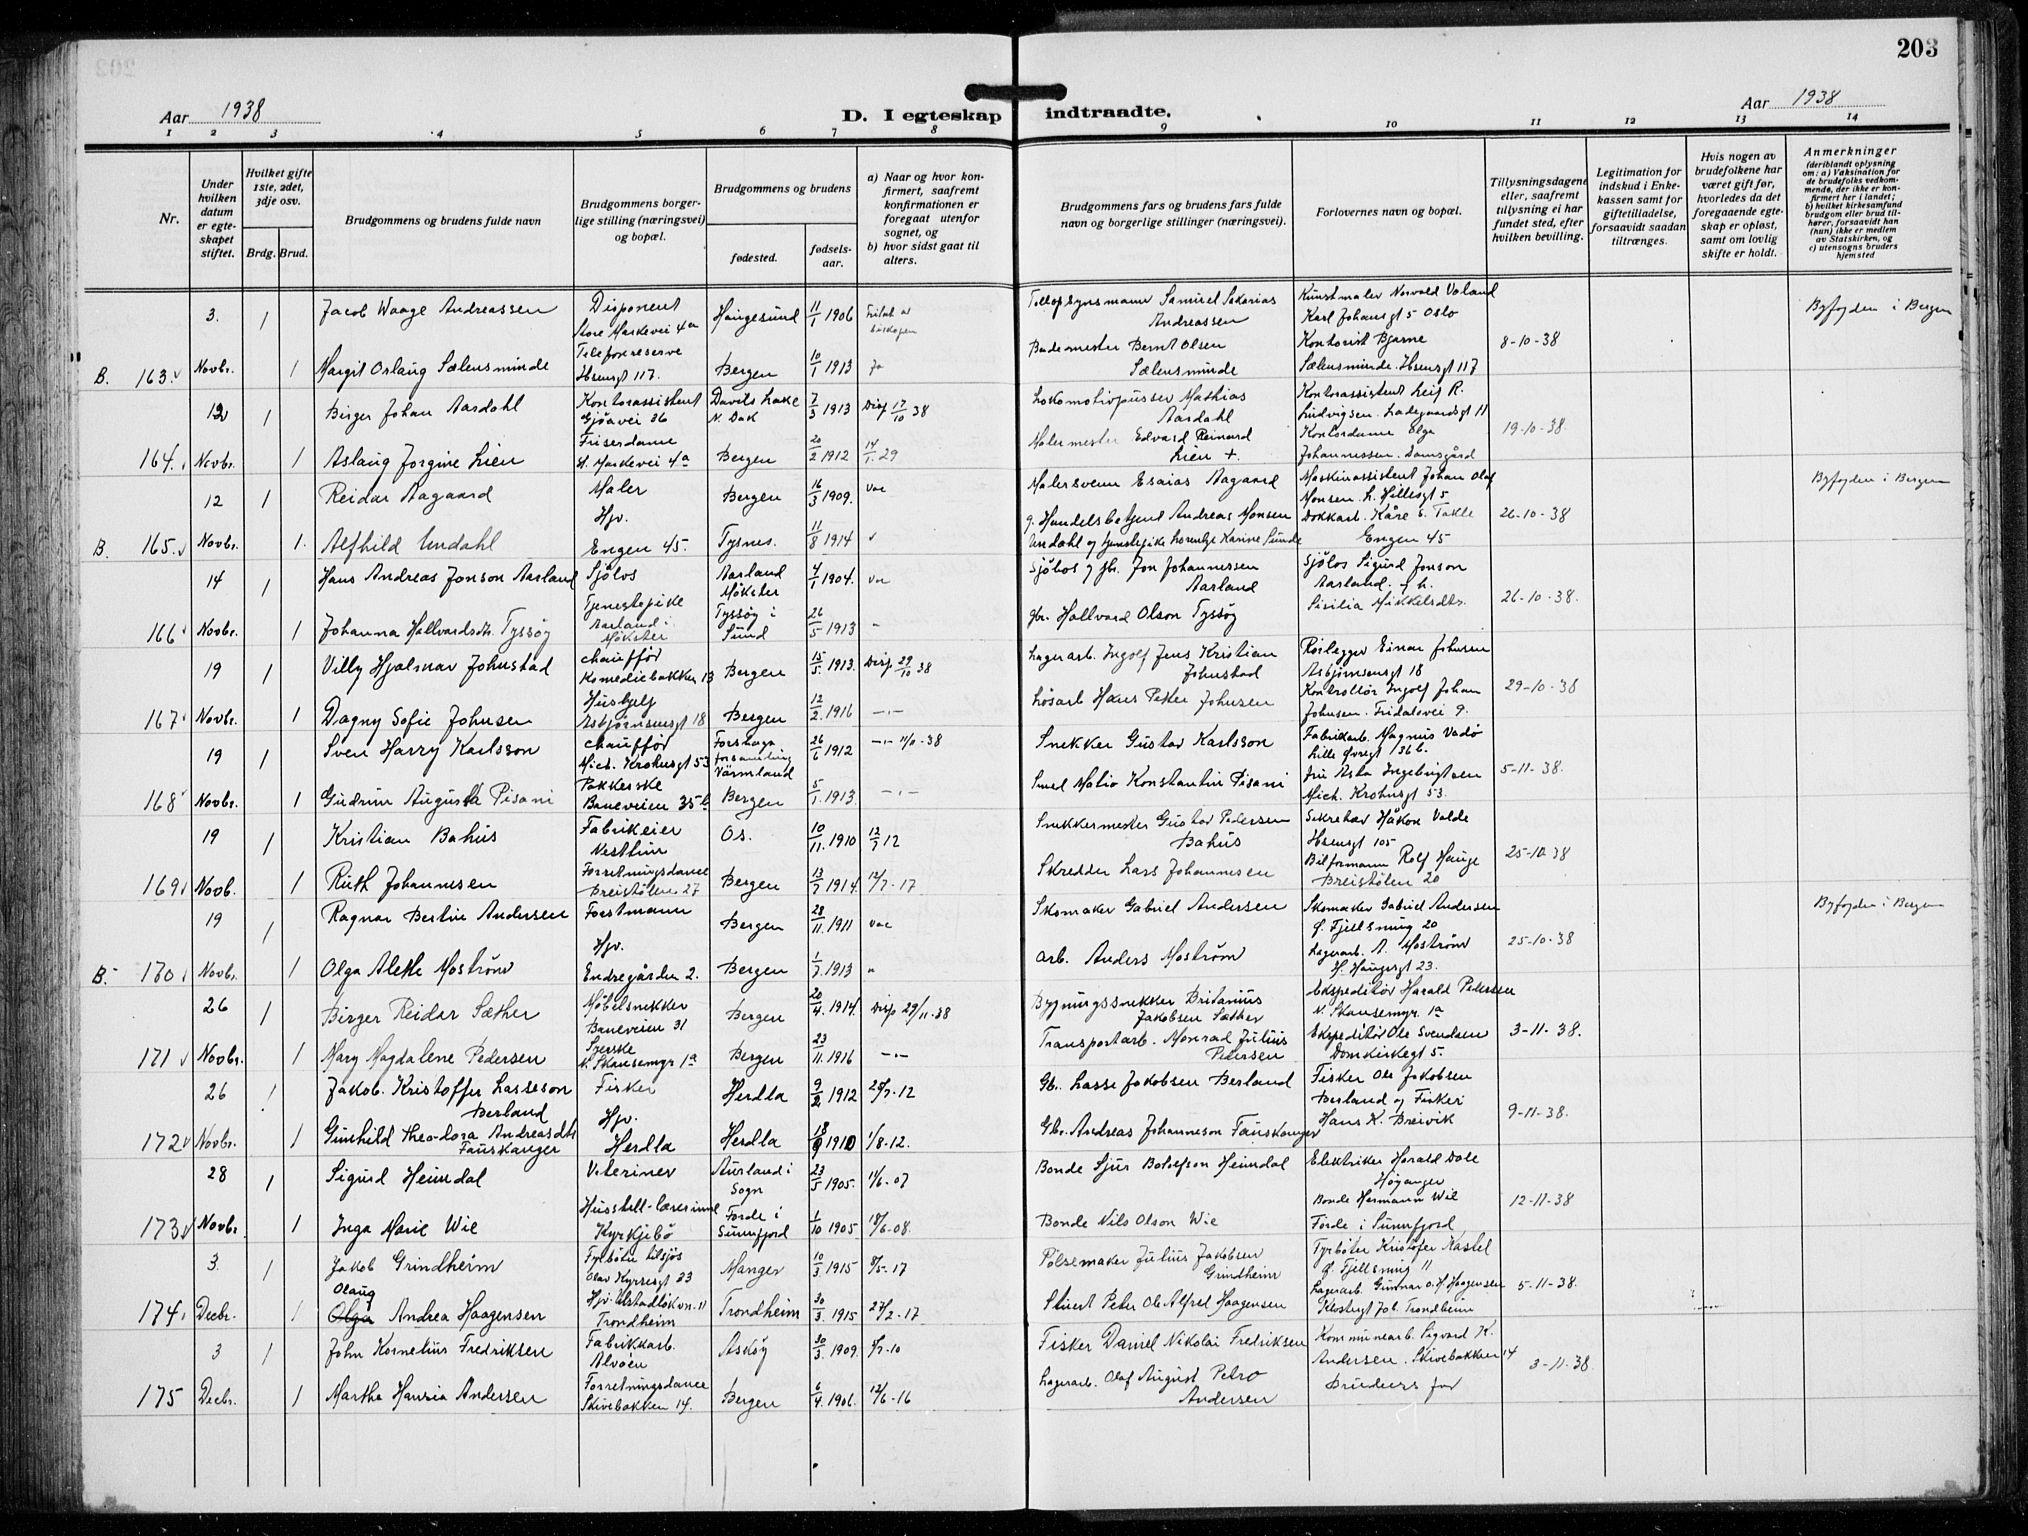 203
Aar 1938
D. I egteskap indtraadte.
Aar 1938
1 2 3 4 5 6 7 8 9 10 11 12 13 14
Nr.
Under hvilken datum er egteskapet stiftet.
Hvilket gifte 1ste, 2det, 3dje osv.
Brdg. Brud.
Brudgommens og brudens fulde navn
Brudgommens borgerlige stilling (næringsvei) og bopæl.
Brudgommens og brudens
fødested.
fødselsaar.
a) Naar og hvor konfirmert, saafremt konfirmationen er foregaat utenfor sognet, og
b) hvor sidst gaat til alters.
Brudgommens fars og brudens fars fulde navn og borgerlige stillinger (næringsvei).
Forlovernes navn og bopæl.
Tillysningsdagene eller, saafremt tillysning ei har fundet sted, efter hvilken bevilling.
Legitimation for indskud i Enkekassen samt for giftetilladelse, forsaavidt saadan tiltrænges.
Hvis nogen av brudefolkene har været gift før, hvorledes da det foregaaende egteskap er opløst, samt om lovlig skifte er holdt.
Anmerkninger
(deriblandt oplysning om: a) Vaksination for de brudefolks vedkommende, der ikke er konfirmert her i landet; b) hvilket kirkesamfund brudgom eller brud tilhører, forsaavidt han (hun) ikke er medlem av Statskirken, og c) utensogns bruders hjemsted
3. 1 Jacob Waage Andreassen Disponent Store Markevei 4a Haugesund 11/1 1906 Tollopsynsmann Samuel Sakarias Andreassen Kunstmaler Norvald Valand Karl Johansgt 5 Oslo 8-10-38 Byfogden i Bergen
B. 163. Novbr. 1 Margit Oslaug Sælensminde Telefonreserve Hsensgt 117. Bergen 10/1 1913 Bademester Bernt Olsen Sælensminde Kontorist Bjarne Sælensminde. Hsensgt 117
12 1 Birger Johan Aardahl Kontorassistent Gjøavei 36 Davils Lake N. Dak 7/3 1913 Disp 17/10 38 Lokomotivpusser Mathias Aardahl Kontorassistent Leif R. Ludvigsen. Ladegaardsgt 11 19-10-38.
164. Novbr. 1 Aslaug Jorgine Lien Friserdame St. Markevei 4a Bergen 20/2 1912 14/1. 29 Malermester Edvard Reinard Lien +. Kontordame Olga Johannessen. Damsgård
12 1 Reidar Aagaard Maler Hjv. Bergen 16/3 1909. Vac Malersvenn Esaias Aagaard Maskinassistent Johan Olaf Monsen. L. Hillesgt 5 26-10-38 Byfogden i Bergen
B. 165. Novbr. 1. Alfhild Undahl Engen 45. Tysnes. 11/8 1914 Handelsbetjent Andreas Monsen Undahl og tjenestepike Lorentze Karine Sunde Dokkarb. Kåre S. Takle Engen 45
14 1 Hans Andreas Jonson Aarland Sjølos Aarland Møkster 4/1 1904. Vac Sjølos og gbr. Jon Johannessen Aarland Sjølos Sigurd Jonson Aarland. g.h. 26-10-38.
166 Novbr. 1 Johanna Hallvardsdtr. Tyssøy Tjenestepike Aarland i Møkster Tyssøy i Sund 26/5 1913 - gbr. Hallvard Olson Tyssøy Sisilia Mikkelsdtr.
19 1 Villy Hjalmar Johnstad Chauffør Komediebakken 13 Bergen 15/5. 1913. Disp 29/10 38 Lagerarb. Ingolf Jens Kristian Johnstad Rørlegger Einar Johnsen Asbjørnsensgt 18 29-10-38
167 Novbr. 1 Dagny Sofie Johnsen Hushjelp Asbjørnsensgt 18 Bergen 12/2. 1916 -"- Løsarb Hans Petter Johnsen Kontrollør Ingolf Johan Johnsen. Fridalsvei 9.
19 1 Sven Harry Karlsson Chauffør Mich. Krohnsgt 53 Forshaga forsamling Värmland 26/6 1912 -"- 11/11-38 Snekker Gustav Karlsson Fabrikarb. Magnus Vadø Lille Øvregt 36b. 5-11-38.
168 Novbr. 1 Gudrun Augusta Pisani Pakkerske Baneveien 35b Bergen 5/1. 1913. -"- Smed Matio Konstantin Pisani Fru Asta Ingebrigtsen Mich. Krohnsgt 53.
19 1 Kristian Bahus Fabrikeier Nesttun Os. 10/11. 1910 12/7 12 Snekkermester Gustav Pedersen Bahus Sekretær Håkon Valde Hsensgt 105 25-10-38
169 Novb. 1 Ruth Johannesen Forretningsdame Breistølen 27 Bergen 13/7 1914. 12/7-17 Skredder Lars Johannesen Bilformann Rolf Hauge Breistølen 20
19 1 Ragnar Bertin Andersen Forstmann Hjv. Bergen 28/11. 1911 Vac Skomaker Gabriel Andersen Skomaker Gabriel Andersen Ø. Fjellsmug 20 25-10-38 Byfogden i Bergen
B. 170. Novbr. 1 Olga Alette Mostrøm Endregården 2. Bergen 1/7. 1913 " Arb. Anders Mostrøm Lagerarb. A. Mostrøm H. Haugesgt 23.
26 1 Birger Reidar Sæther Møbelsnekker Baneveien 31 Bergen 20/4. 1914. Disp 29/11-38 Bygningssnekker Britanius Jakobsen Sæther Ekspeditør Harald Pedersen N. Skansemyr. 1a 3-11-38.
171 Novbr. 1 Mary Magdalene Pedersen Syerske N. Skansemyr 1a Bergen 23/11. 1916 -"- Transportarb. Monrad Julius Pedersen Ekspeditør Ole Svendsen Domkirkegt 5.
26 1 Jakob. Kristoffer Lasseson Berland Fisker Hjv. Herdla 9/2 1912 29/7-12 Gb. Lasse Jakobsen Berland Fisker Ole Jakobsen Berland og Fisker 9-11-38.
172 Novbr. 1 Gunhild Theodora Andreasdtr Fauskanger Herdla Herdla 18/9 1910 1/8-12. Gbr. Andreas Johanneson Fauskanger Hans K. Breivik
28 1 Sigurd Heimdal Veterinær Aurland i Sogn 23/5 1905. 11/6-07 Bonde Sjur Botolfson Heimdal Elektriker Harald Dale Høyanger 12-11-38
173 Novbr. 1 Inga Marie Wie Husstell-lærerinne Kyrkjebø Førde i Sunnfjord 1/10 1905 18/6-08 Bonde Nils Olson Wie Bonde Hermann Wie Førde i Sunnfjord
3. 1 Jakob Grindheim Fyrbøter tilsjøs Olav Kyrresgt 23 Manger 10/3. 1915 8/5-17 Pølsemaker Julius Jakobsen Grindheim Fyrbøter Kristofer Kastel Ø. Fjellsmug 11 5-11-38.
174. Decbr. 1 Olaug Olga Andrea Haagensen Trondheim Trondheim 30/3. 1915 27/2-17 Stuert Peter Ole Alfred Haagensen Lagerarb. Gunnar O. H. Haagensen Trondheim
3 1 John Kornelius Fredriksen Fabrikkarb. Alvøen Askøy 30/3. 1909. 4/7-10 Fisker Daniel Nikolai Fredriksen Kommunearb. Sigvard K. Andersen. Skivebakken 14 3-11-38.
175 Decbr. 1 Martha Hansia Andersen Forretningsdame Skivebakken 14. Bergen 6/4. 1906. 12/6-16 Lagerarb. Olaf August Petro Andersen Brudens far